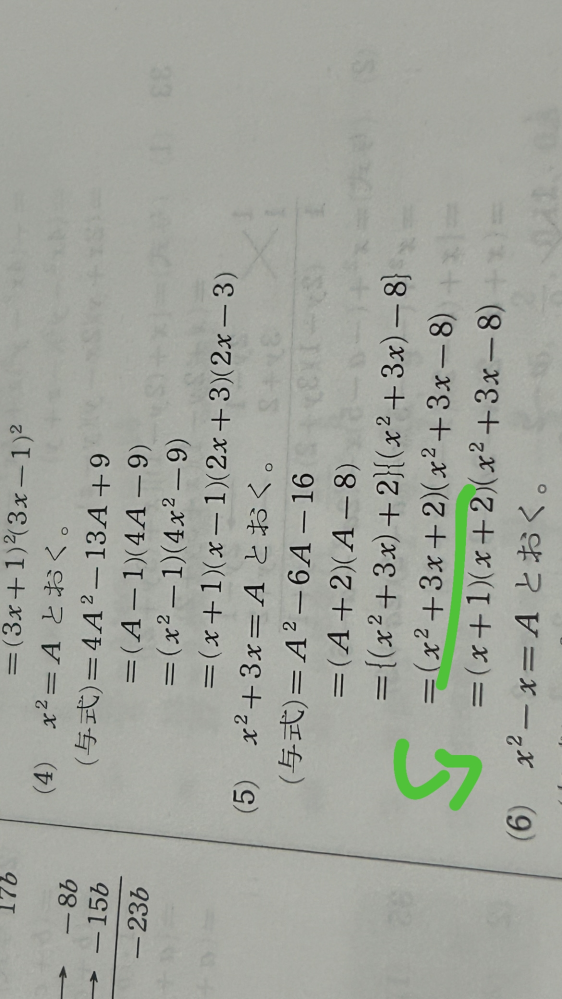 =(3x+1)²(3x−1)²
(4) x²=A とおく。
(与式)=4A²−13A+9
=(A−1)(4A−9)
=(x²−1)(4x²−9)
=(x+1)(x−1)(2x+3)(2x−3)
(5) x²+3x=A とおく。
(与式)=A²−6A−16
=(A+2)(A−8)
={(x²+3x)+2}{(x²+3x)−8}
=(x²+3x+2)(x²+3x−8)
=(x+1)(x+2)(x²+3x−8)
(6) x²−x=A とおく。
17b
→ −8b
→ −15b
−23b